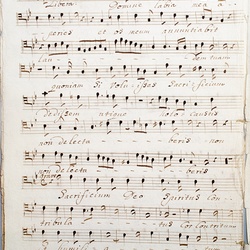 Libera Domine labia mea a
peries et os meum annuntiabit
lau dem tuam
Quoniam Si volu isses Sacrificium
dedissem utique holo caustis
non delecta beris non
non delecta beris
Sacrificium Deo Spiritus con
tribula tus Cor contritum
humilia